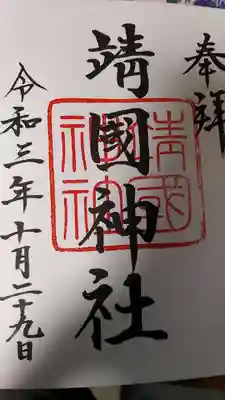 奉拝
靖國神社
靖國神社
令和三年十月二十九日